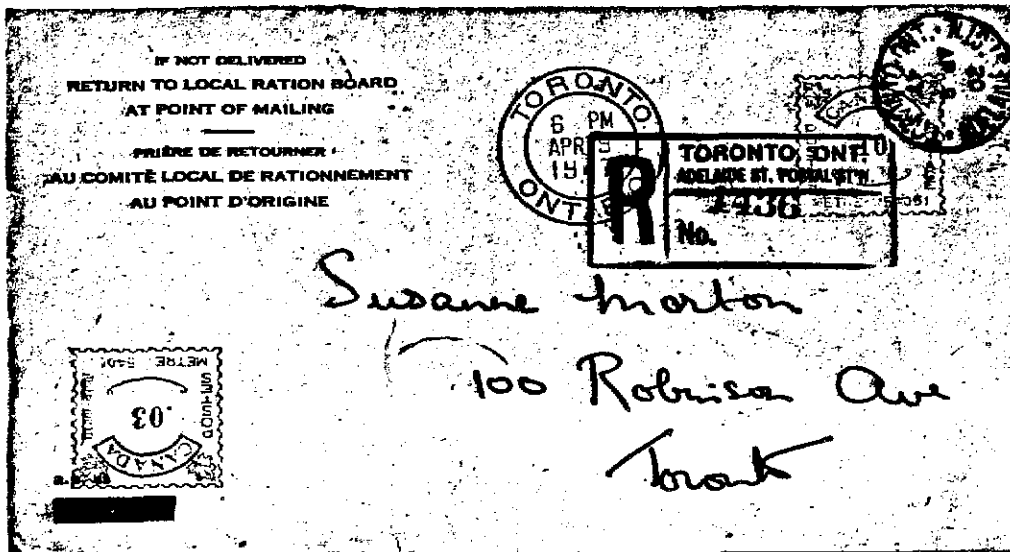 IF NOT DELIVERED
RETURN TO LOCAL RATION BOARD
AT POINT OF MAILING
PRIÈRE DE RETOURNER
AU COMITÉ LOCAL DE RATIONNEMENT
AU POINT D'ORIGINE
TORONTO
6 PM
APR
19
ONT
R
TORONTO, ONT.
ADELAIDE ST. POSTAL ST'N
No.
10
Susanne Morton
100 Robinson Ave
Toronto
METRE
POSTES
.03
CANADA